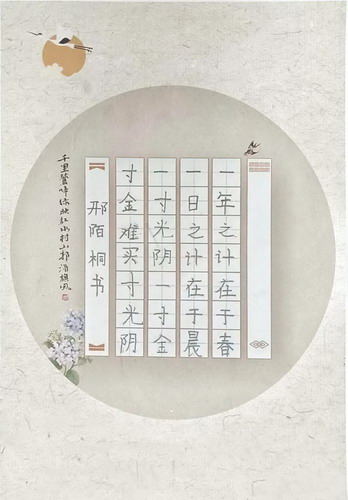 一年之计在于春
一日之计在于晨
一寸光阴一寸金
寸金难买寸光阴
邢陌桐书
千里莺啼绿映红水村山郭酒旗风